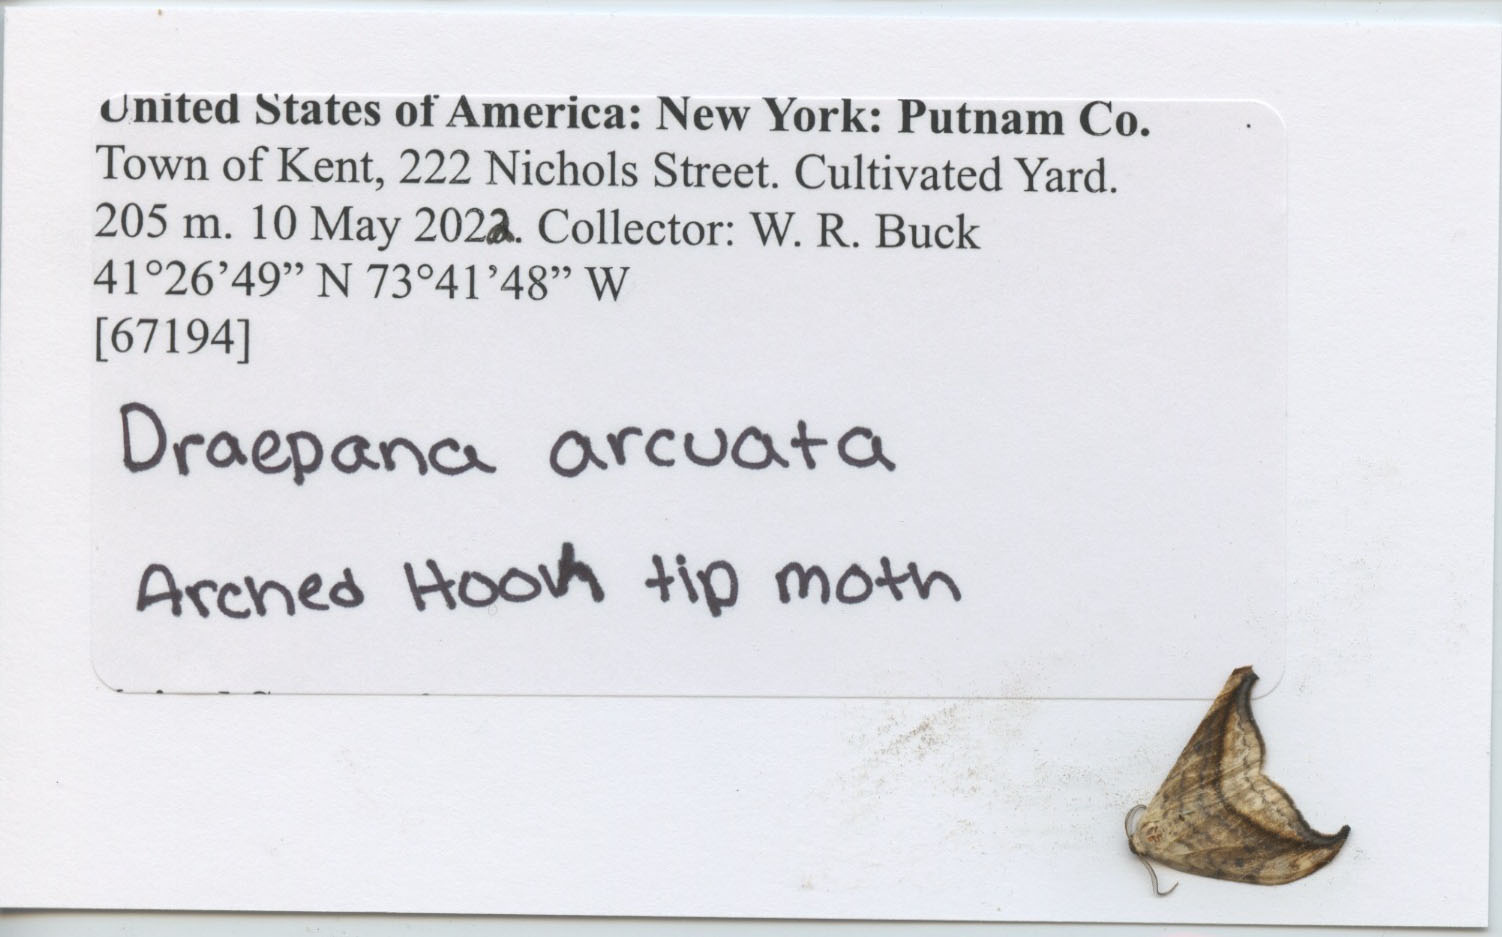 United States of America: New York: Putnam Co.
Town of Kent, 222 Nichols Street. Cultivated Yard.
205 m. 10 May 2022. Collector: W. R. Buck
41°26’49” N 73°41’48” W
[67194]
Draepana arcuata
Arched Hook tip moth